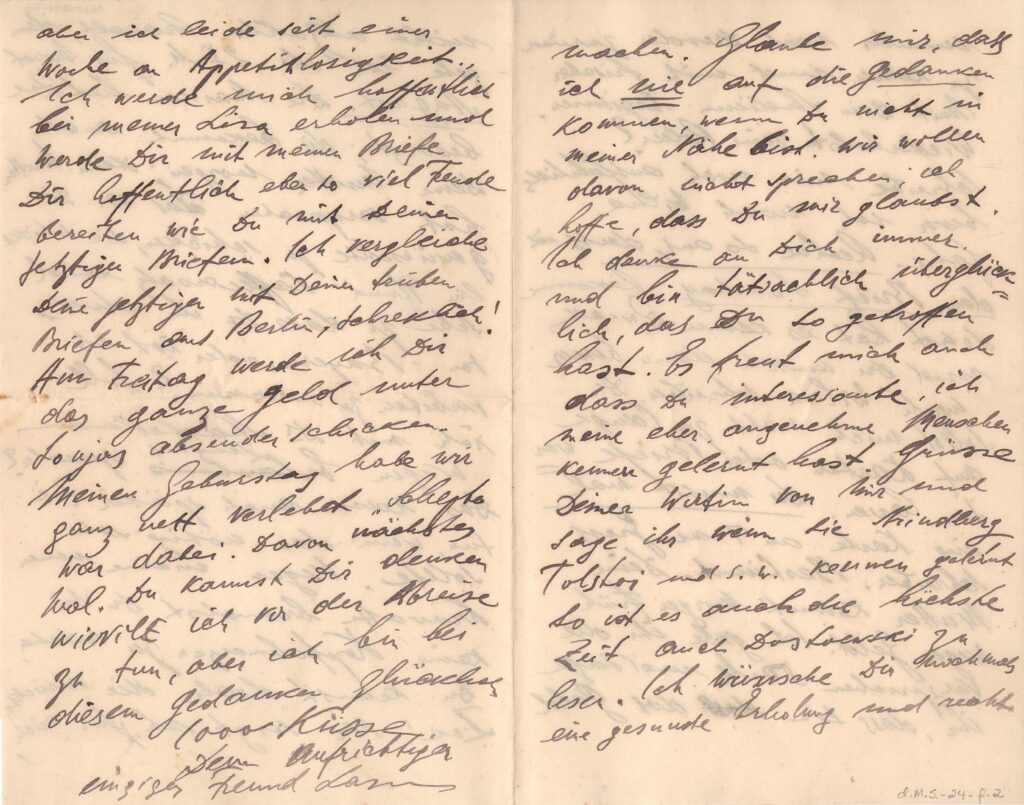 aber ich leide seit einer
Woche an Appetitlosigkeit.
Ich werde mich hoffentlich
bei meiner Lisa erholen und
werde Dir mit meinen Briefe
Dir hoffentlich eben so viel Freude
bereiten wie Du mit Deinen
jetztigen Briefen. Ich vergleiche
Deine jetztigen mit Deinen trüben
Briefen aus Berlin; schreklich!
Am Freitag werde ich Dir
das ganze Geld unter
Sonjas absender schicken.
Meinen Geburstag habe wir
ganz nett verlebt
war dabei. Davon nächstes
Mal. Du kannst Dir denken
wieviel ich vor der Abreise
zu tun, aber ich bin bei
diesem Gedanken glücklich
1000 Küsse
Dein aufrichtiger
einziger Freund
machen. Glaube mir, dass
ich nie auf die Gedanken
kommen, wenn Du nicht in
meiner Nähe bist. Wir wollen
davon nicht sprechen; ich
hoffe, dass Du mir glaubst.
Ich denke an Dich immer
und bin tätsachlich überglück=
lich, das Du so getroffen
hast. Es freut mich auch
dass Du interessante, ich
meine eher angenehme Menschen
kennen gelernt hast. Grüsse
Deiner Wirtin von mir und
sage ihr wenn sie
Tolstoi und s. w. kennen gelernt
so ist es auch die höchste
Zeit auch Dostoewski zu
lesen. Ich wünsche Dir nochmals
eine gesunde Erholung und recht
d.M.S.-24-p.2